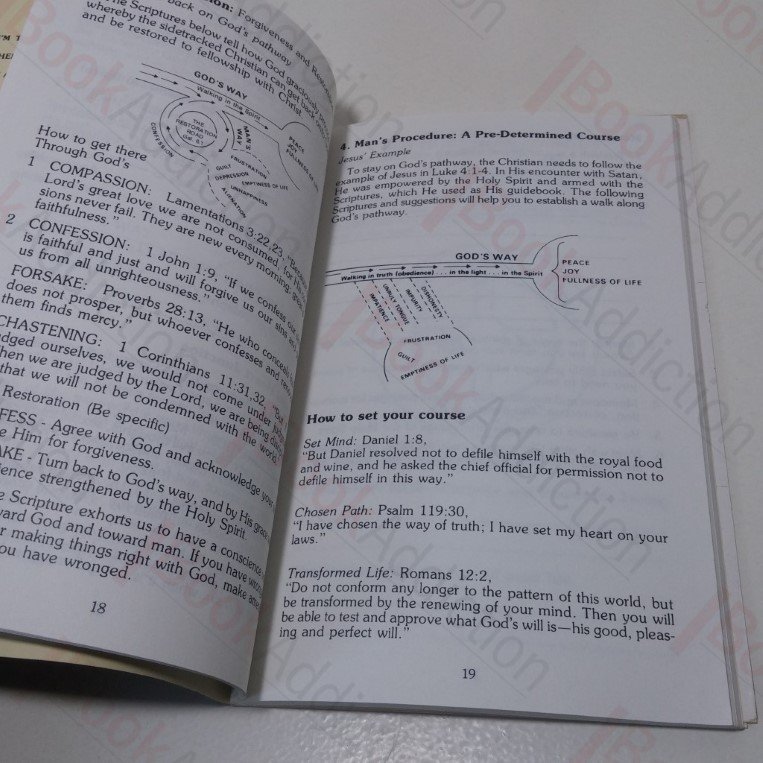 back on God's pathway
The Scriptures below tell how God graciously
whereby the sidetracked Christian can get back
and be restored to fellowship with Christ
GOD'S WAY
Walking in the Spirit
THE
RESTORATION
ROAD
CONFESSION
MAN'S
WAY
PEACE
JOY
FULLNESS OF LIFE
FRUSTRATION
GUILT
DEPRESSION
EMPTINESS OF LIFE
How to get there
Through God's
1 COMPASSION: Lamentations 3:22,23,
Lord's great love we are not consumed, for His
sions never fail. They are new every morning;
faithfulness."
2 CONFESSION: 1 John 1:9, "If we confess our
is faithful and just and will forgive us our sins
us from all unrighteousness."
FORSAKE: Proverbs 28:13, "He who conceals
does not prosper, but whoever confesses and
them finds mercy."
CHASTENING: 1 Corinthians 11:31,32, "But
dged ourselves, we would not come under
hen we are judged by the Lord, we are being
that we will not be condemned with the world.
Restoration (Be specific)
FESS - Agree with God and acknowledge your
e Him for forgiveness.
AKE - Turn back to God's way, and by His
ience strengthened by the Holy Spirit.
e Scripture exhorts us to have a conscience
ward God and toward man. If you have
r making things right with God, make
ou have wronged.
18
4. Man's Procedure: A Pre-Determined Course
Jesus' Example
To stay on God's pathway, the Christian needs to follow the
example of Jesus in Luke 4:1-4. In his encounter with Satan,
He was empowered by the Holy Spirit and armed with the
Scriptures, which He used as His guidebook. The following
Scriptures and suggestions will help you to establish a walk along
God's pathway.
GOD'S WAY
Walking in truth (obedience) . . . in the light . . . in the Spirit
PEACE
JOY
FULLNESS OF LIFE
IMPATIENCE
UNRULY TONGUE
IMPURITY
DISHONESTY
FRUSTRATION
GUILT
EMPTINESS OF LIFE
How to set your course
Set Mind: Daniel 1:8,
"But Daniel resolved not to defile himself with the royal food
and wine, and he asked the chief official for permission not to
defile himself in this way."
Chosen Path: Psalm 119:30,
"I have chosen the way of truth; I have set my heart on your
laws."
Transformed Life: Romans 12:2,
"Do not conform any longer to the pattern of this world, but
be transformed by the renewing of your mind. Then you will
be able to test and approve what God's will is—his good, pleas-
ing and perfect will."
19
BookAddiction